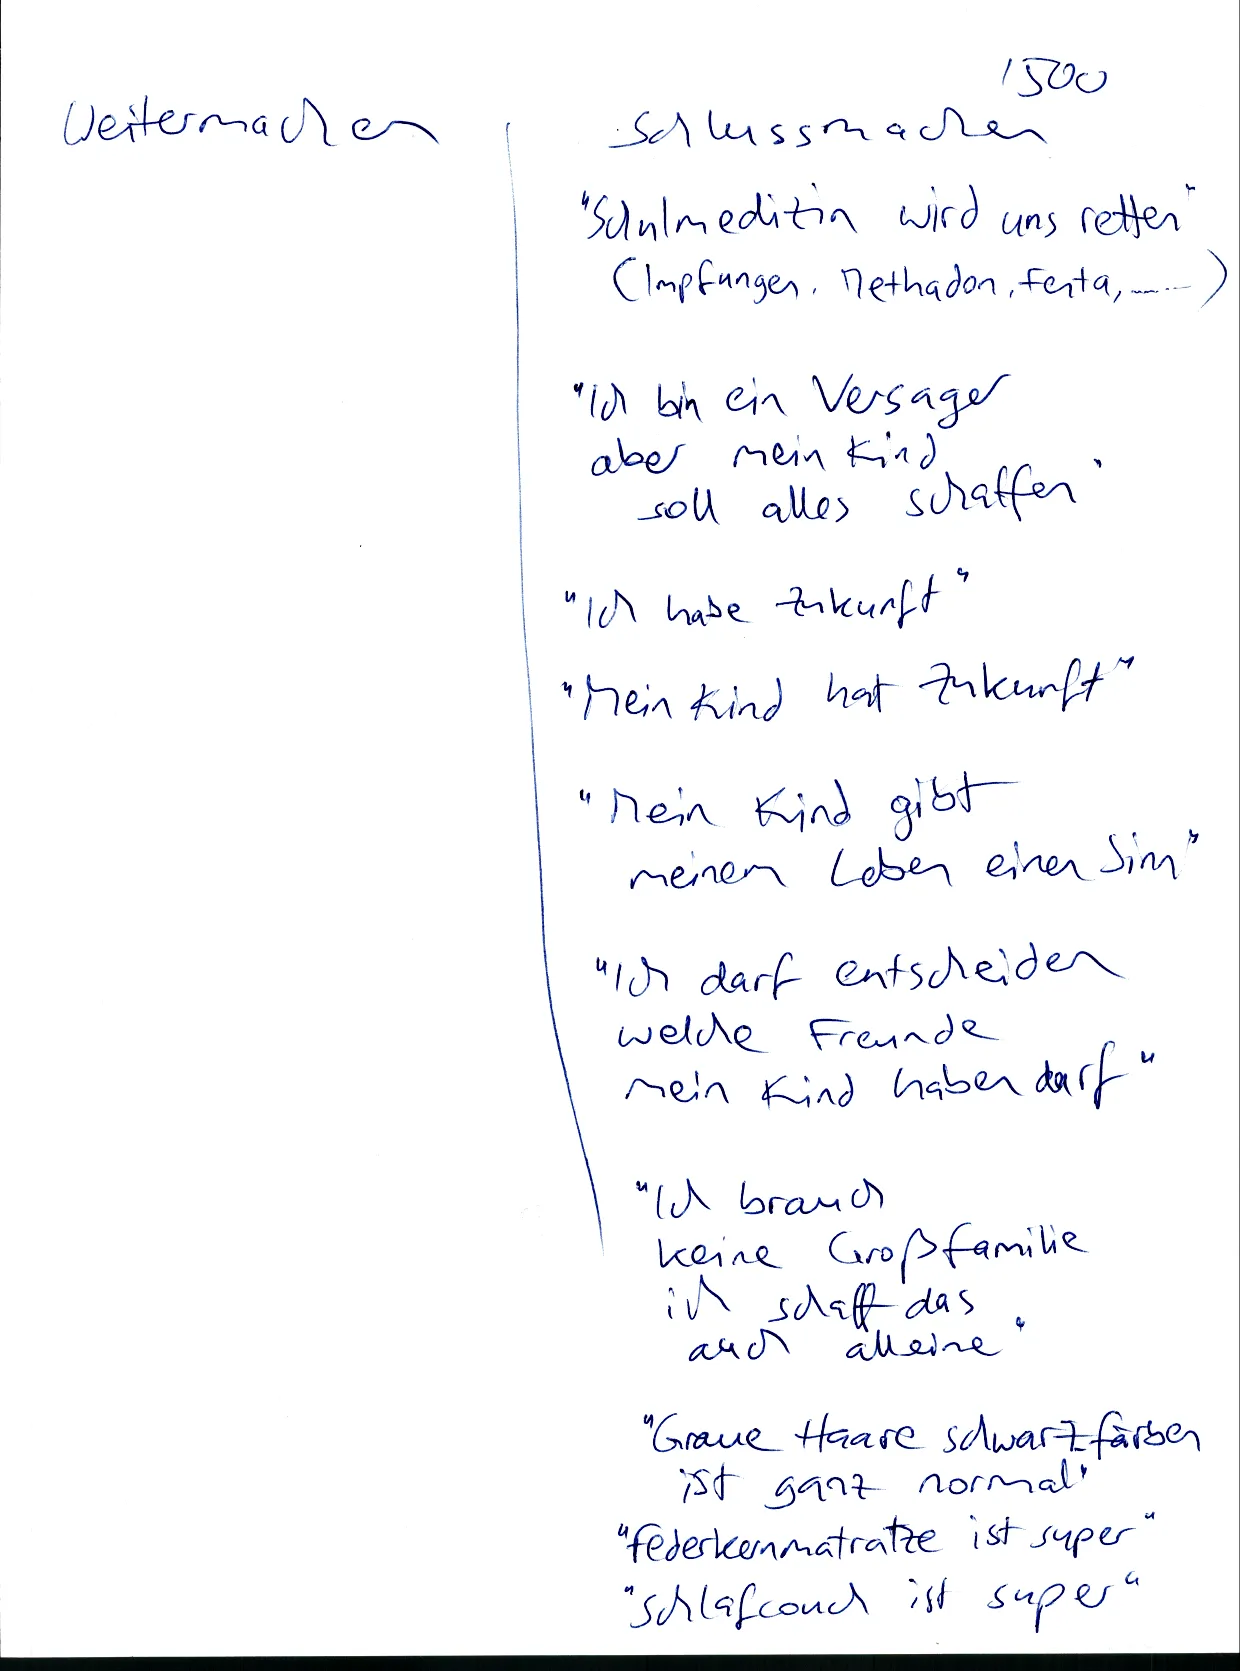 1500
Weitermachen
Schlussmachen
"Schulmeditin wird uns retten"
(Impfungen, Methadon, Fenta, ......)
"Ich bin ein Versager
aber mein Kind
soll alles schaffen"
"Ich habe Zukunft"
"Mein Kind hat Zukunft"
"Mein Kind gibt
meinem Leben einen Sinn"
"Ich darf entscheiden
welche Freunde
mein Kind haben darf"
"Ich brauch
keine Großfamilie
ich schaff das
auch alleine"
"Graue Haare schwarz färben
ist ganz normal"
"Federkernmatratze ist super"
"Schlafcouch ist super"